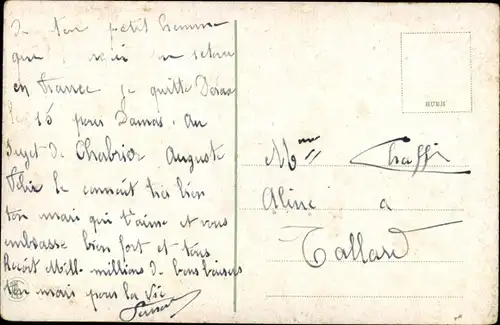 de ton petit homme
que voici de retour
en France je quitte
le 15 pour Damas. Au
sujet de Chabrier Auguste
Félix le connait très bien
ton mari qui t'aime et vous
embrasse bien fort et tous
Reçoit Mill- millions de bons baisers
ton mari pour la Vie
Mme Chaffi
Aline a
Tallard